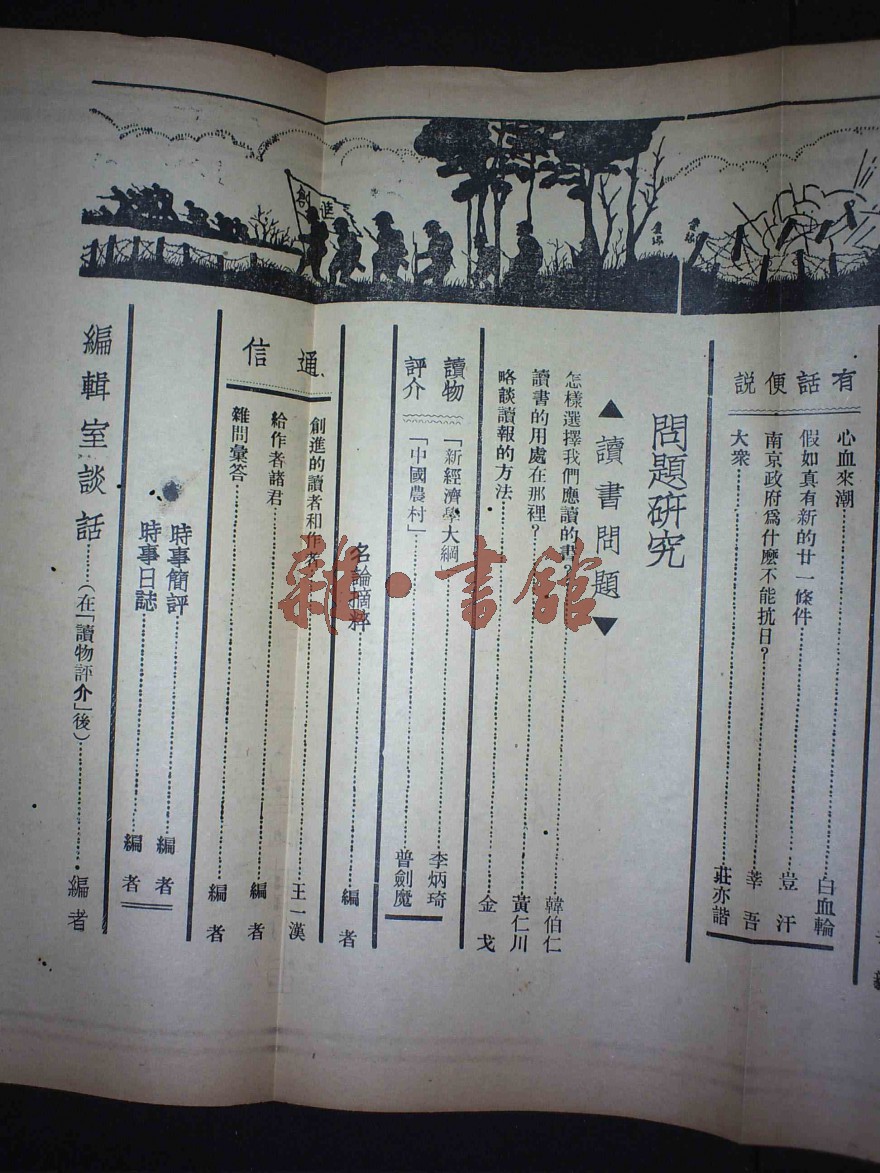 創進
有話便説
心血來潮……白血輪
假如真有新的廿一條件……豈汗
南京政府爲什麽不能抗日？……莘吾
大衆……莊亦諧
問題研究
▲讀書問題▼
怎樣選擇我們應讀的書？……韓伯仁
讀書的用處在那裡？……黃仁川
略談讀報的方法……金戈
讀物評介
「新經濟學大綱」……李炳琦
「中國農村」……普劍魔
名論摘粹……編者
通信
創進的讀者和作者……王一漢
給作者諸君……編者
雜問彙答……編者
時事簡評……編者
時事日誌……編者
編輯室談話……（在「讀物評介」後）……編者
雜·書館